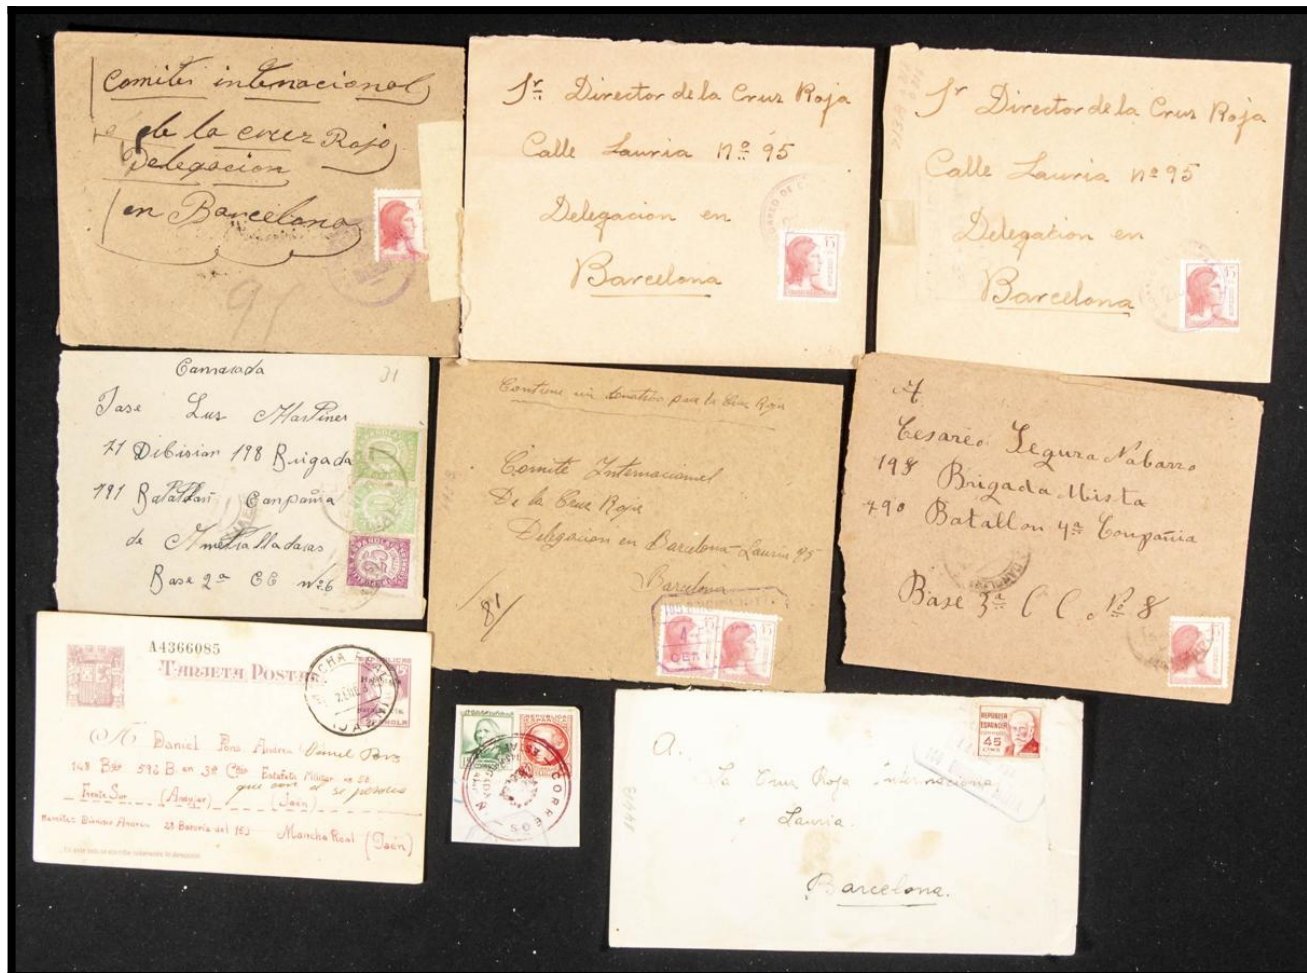 Comites internacional
de la cruz Rojo
Delegacion
en Barcelona
91
Sr. Director de la Cruz Roja
Calle Lauria Nº 95
Delegacion en
Barcelona
45
Sr Director de la Cruz Roja
Calle Lauria nº 95
Delegation en
Barcelona
45
Camarada
31
Jase Lus Martines
71 Dibision 198 Brigada
791 Batallon Conpañia
de Ametralladaras
Base 2ª CC nº 6
Contiene un para la Cruz Roja
Comite Internacional
De la Cruz Roja
Delegacion en Barcelona Lauria 95
Barcelona
81
45
A
Cesareo Segura Nabarro
198 Brigada Mista
790 Batallon 4ª Conpañia
Base 3ª C C Nº 8
45
A4366085
TARJETA POSTAL
MANCHA REAL
(JAEN)
A Daniel Pons Andreu
148 Bda 592 B. en 3ª Cía Estafeta Militar nº 50
que con el se
Frente Sur (Andújar) (Jaén)
Bienvino Andreu 2ª Batería del 15,5 Mancha Real (Jaén)
REPUBLICA
ESPAÑOLA
CORREOS
REPUBLICA
ESPAÑOLA
45
CTMS
A.
La Cruz Roja Internaciona
Lauria.
Barcelona.